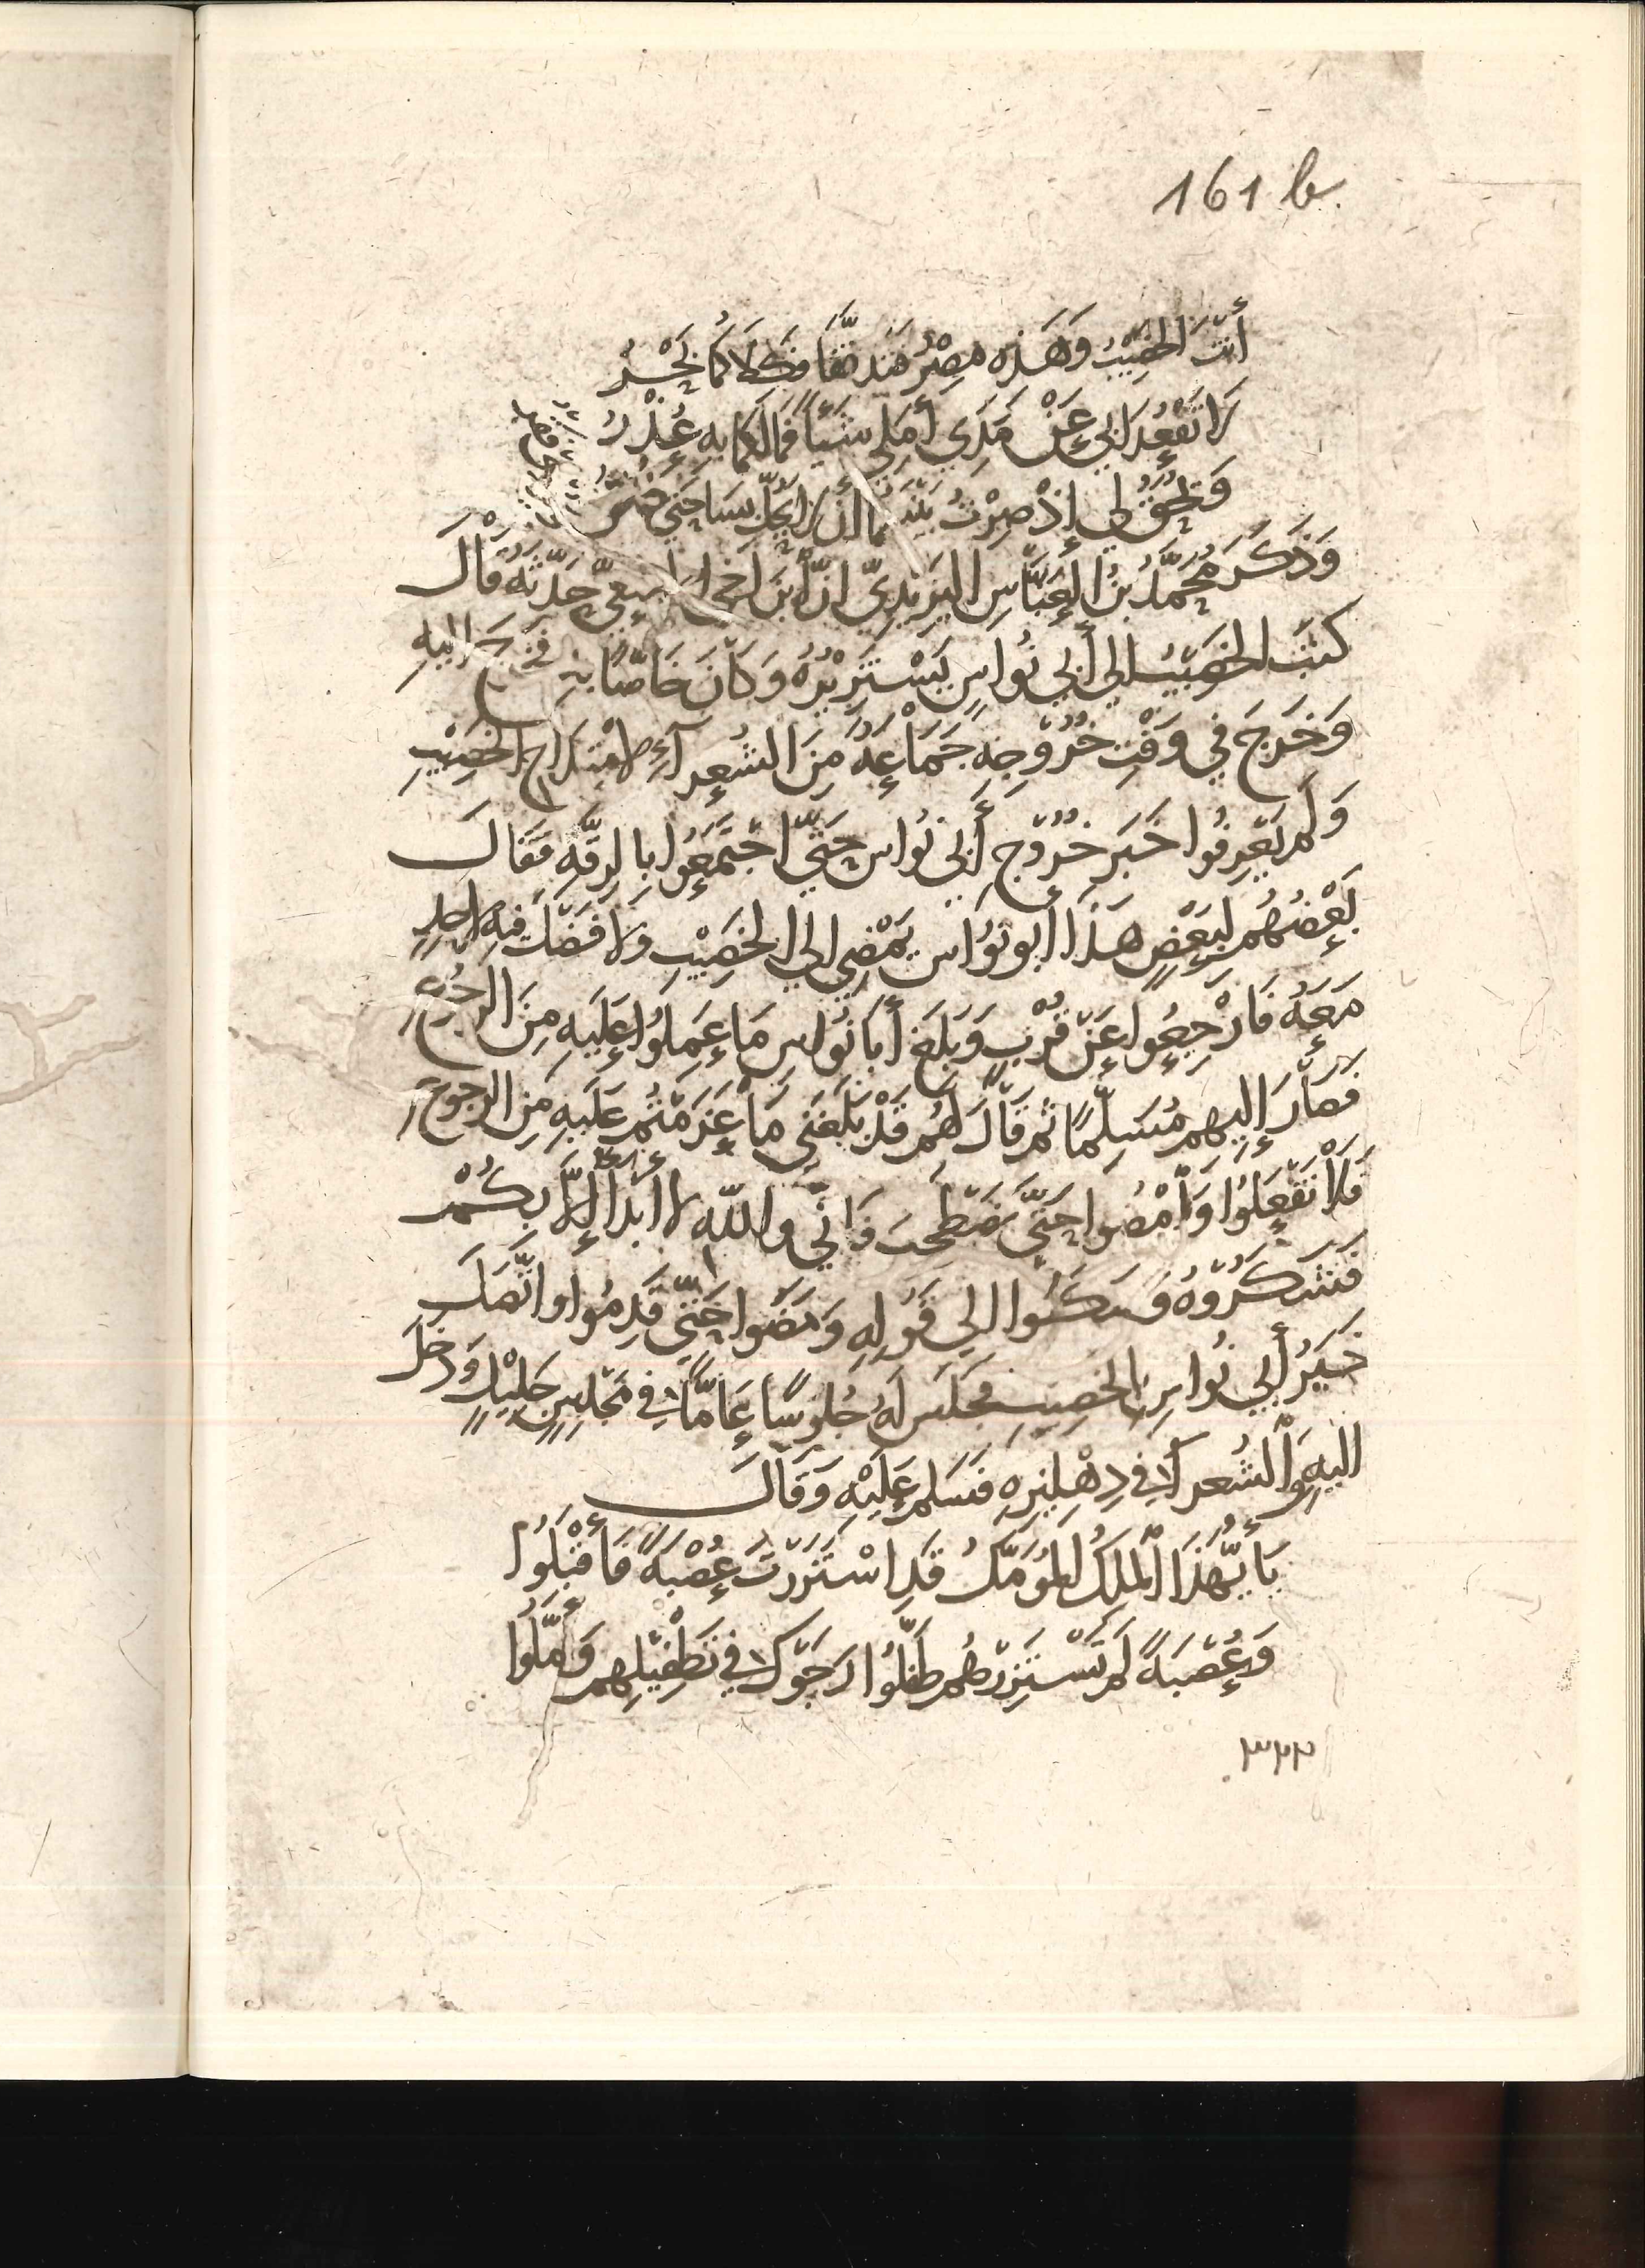 161 b
أَنْتَ الْخَصِيبُ وَهَذِهِ مِصْرُ فَتَدَفَّقَا فَكِلَاكُمَا بَحْرُ
لَا تَقْعُدَا بِي عَنْ مَدَى أَمَلِي شَيْئًا فَمَا لَكُمَا بِهِ عُذْرُ
وَيَحِقُّ لِي إِذْ صِرْتُ بَيْنَكُمَا أَنْ لَا يَحُلَّ بِسَاحَتِي فَقْرُ
وَذَكَرَ مُحَمَّدُ بْنُ الْعَبَّاسِ الْيَزِيدِيُّ أَنَّ ابْنَ أَخِي الأصمعيّ حَدَّثَهُ قَالَ
كَتَبَ الْخَصِيبُ إِلَى أَبِي نُوَاسٍ يَسْتَزِيرُهُ وَكَانَ خَاصًّا بِهِ فَخَرَجَ إِلَيْهِ
وَخَرَجَ فِي وَقْتِ خُرُوجِهِ جَمَاعَةٌ مِنَ الشُّعَرَآءِ لِامْتِدَاحِ الْخَصِيبِ
وَلَمْ يَعْرِفُوا خَبَرَ خُرُوجِ أَبِي نُوَاسٍ حَتَّى اجْتَمَعُوا بِالرَّقَّةِ فَقَالَ
بَعْضُهُمْ لِبَعْضٍ هَذَا أَبُو نُوَاسٍ يَمْضِي إِلَى الْخَصِيبِ وَلَا فَضْلَ فِيهِ لِأَحَدٍ
مَعَهُ فَارْجِعُوا عَنْ قُرْبٍ وَبَلَغَ أَبَا نُوَاسٍ مَا عَمِلُوا عَلَيْهِ مِنَ الرُّجُوعِ
فَصَارَ إِلَيْهِمْ مُسَلِّمًا ثُمَّ قَالَ لَهُمْ قَدْ بَلَغَنِي مَا عَزَمْتُمْ عَلَيْهِ مِنَ الرُّجُوعِ
فَلَا تَفْعَلُوا وَامْضُوا حَتَّى نَصْطَحِبَ فَإِنِّي وَاللَّهِ لَا أَبْدَأُ إِلَّا بِكُمْ
فَشَكَرُوهُ وَسَكَنُوا إِلَى قَوْلِهِ وَمَضَوا حَتَّى قَدِمُوا وَاتَّصَلَ
خَبَرُ أَبِي نُوَاسٍ بِالْخَصِيبِ فَجَلَسَ لَهُ جُلُوسًا عَامًّا فِي مَجْلِسٍ جَلِيلٍ وَدَخَلَ
إِلَيْهِ وَالشُّعَرَآءُ فِي دِهْلِيزِهِ فَسَلَّمَ عَلَيْهِ وَقَالَ
يَا أَيُّهَذَا الْمَلِكُ الْمُؤَمَّلُ قَدِ اسْتَزَرْتَ عُصْبَةً فَأَقْبَلُوا
وَعُصْبَةً لَمْ تَسْتَزِرْهُمْ طَفَّلُوا رَجَوْكَ فِي تَطْفِيلِهِمْ وَأَمَّلُوا
٣٢٢